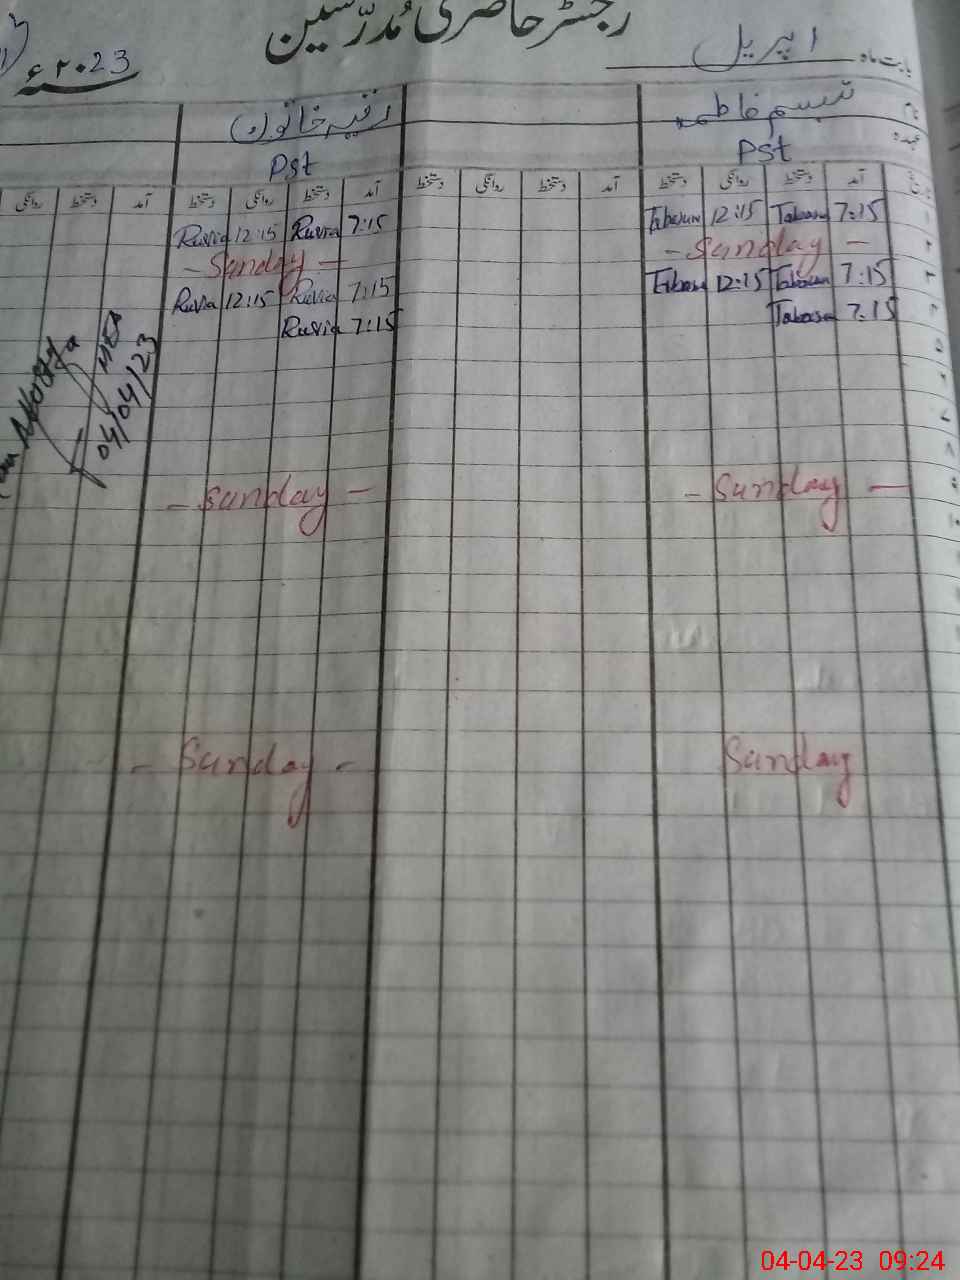 رجسٹر حاضری مُدرّسین
بابت ماہ اپریل ۲۰23ء
نام تبسم فاطمہ رقیہ خاتون
عہدہ PST Pst
آمد دستخط روانگی دستخط آمد دستخط روانگی دستخط آمد دستخط روانگی دستخط آمد دستخط روانگی
۱ 7:15 12:15 7:15 Ruvia 12:15 Ruvia
۲ - Sunday - - Sunday -
۳ 7:15 12:15 7:15 Ruvia 12:15 Ruvia
۴ 7:15 7:15 Ruvia
۵
۶
۷
۸
۹ - Sunday - - Sunday -
۱۰
Sunday - Sunday -
04/04/23
04-04-23 09:24